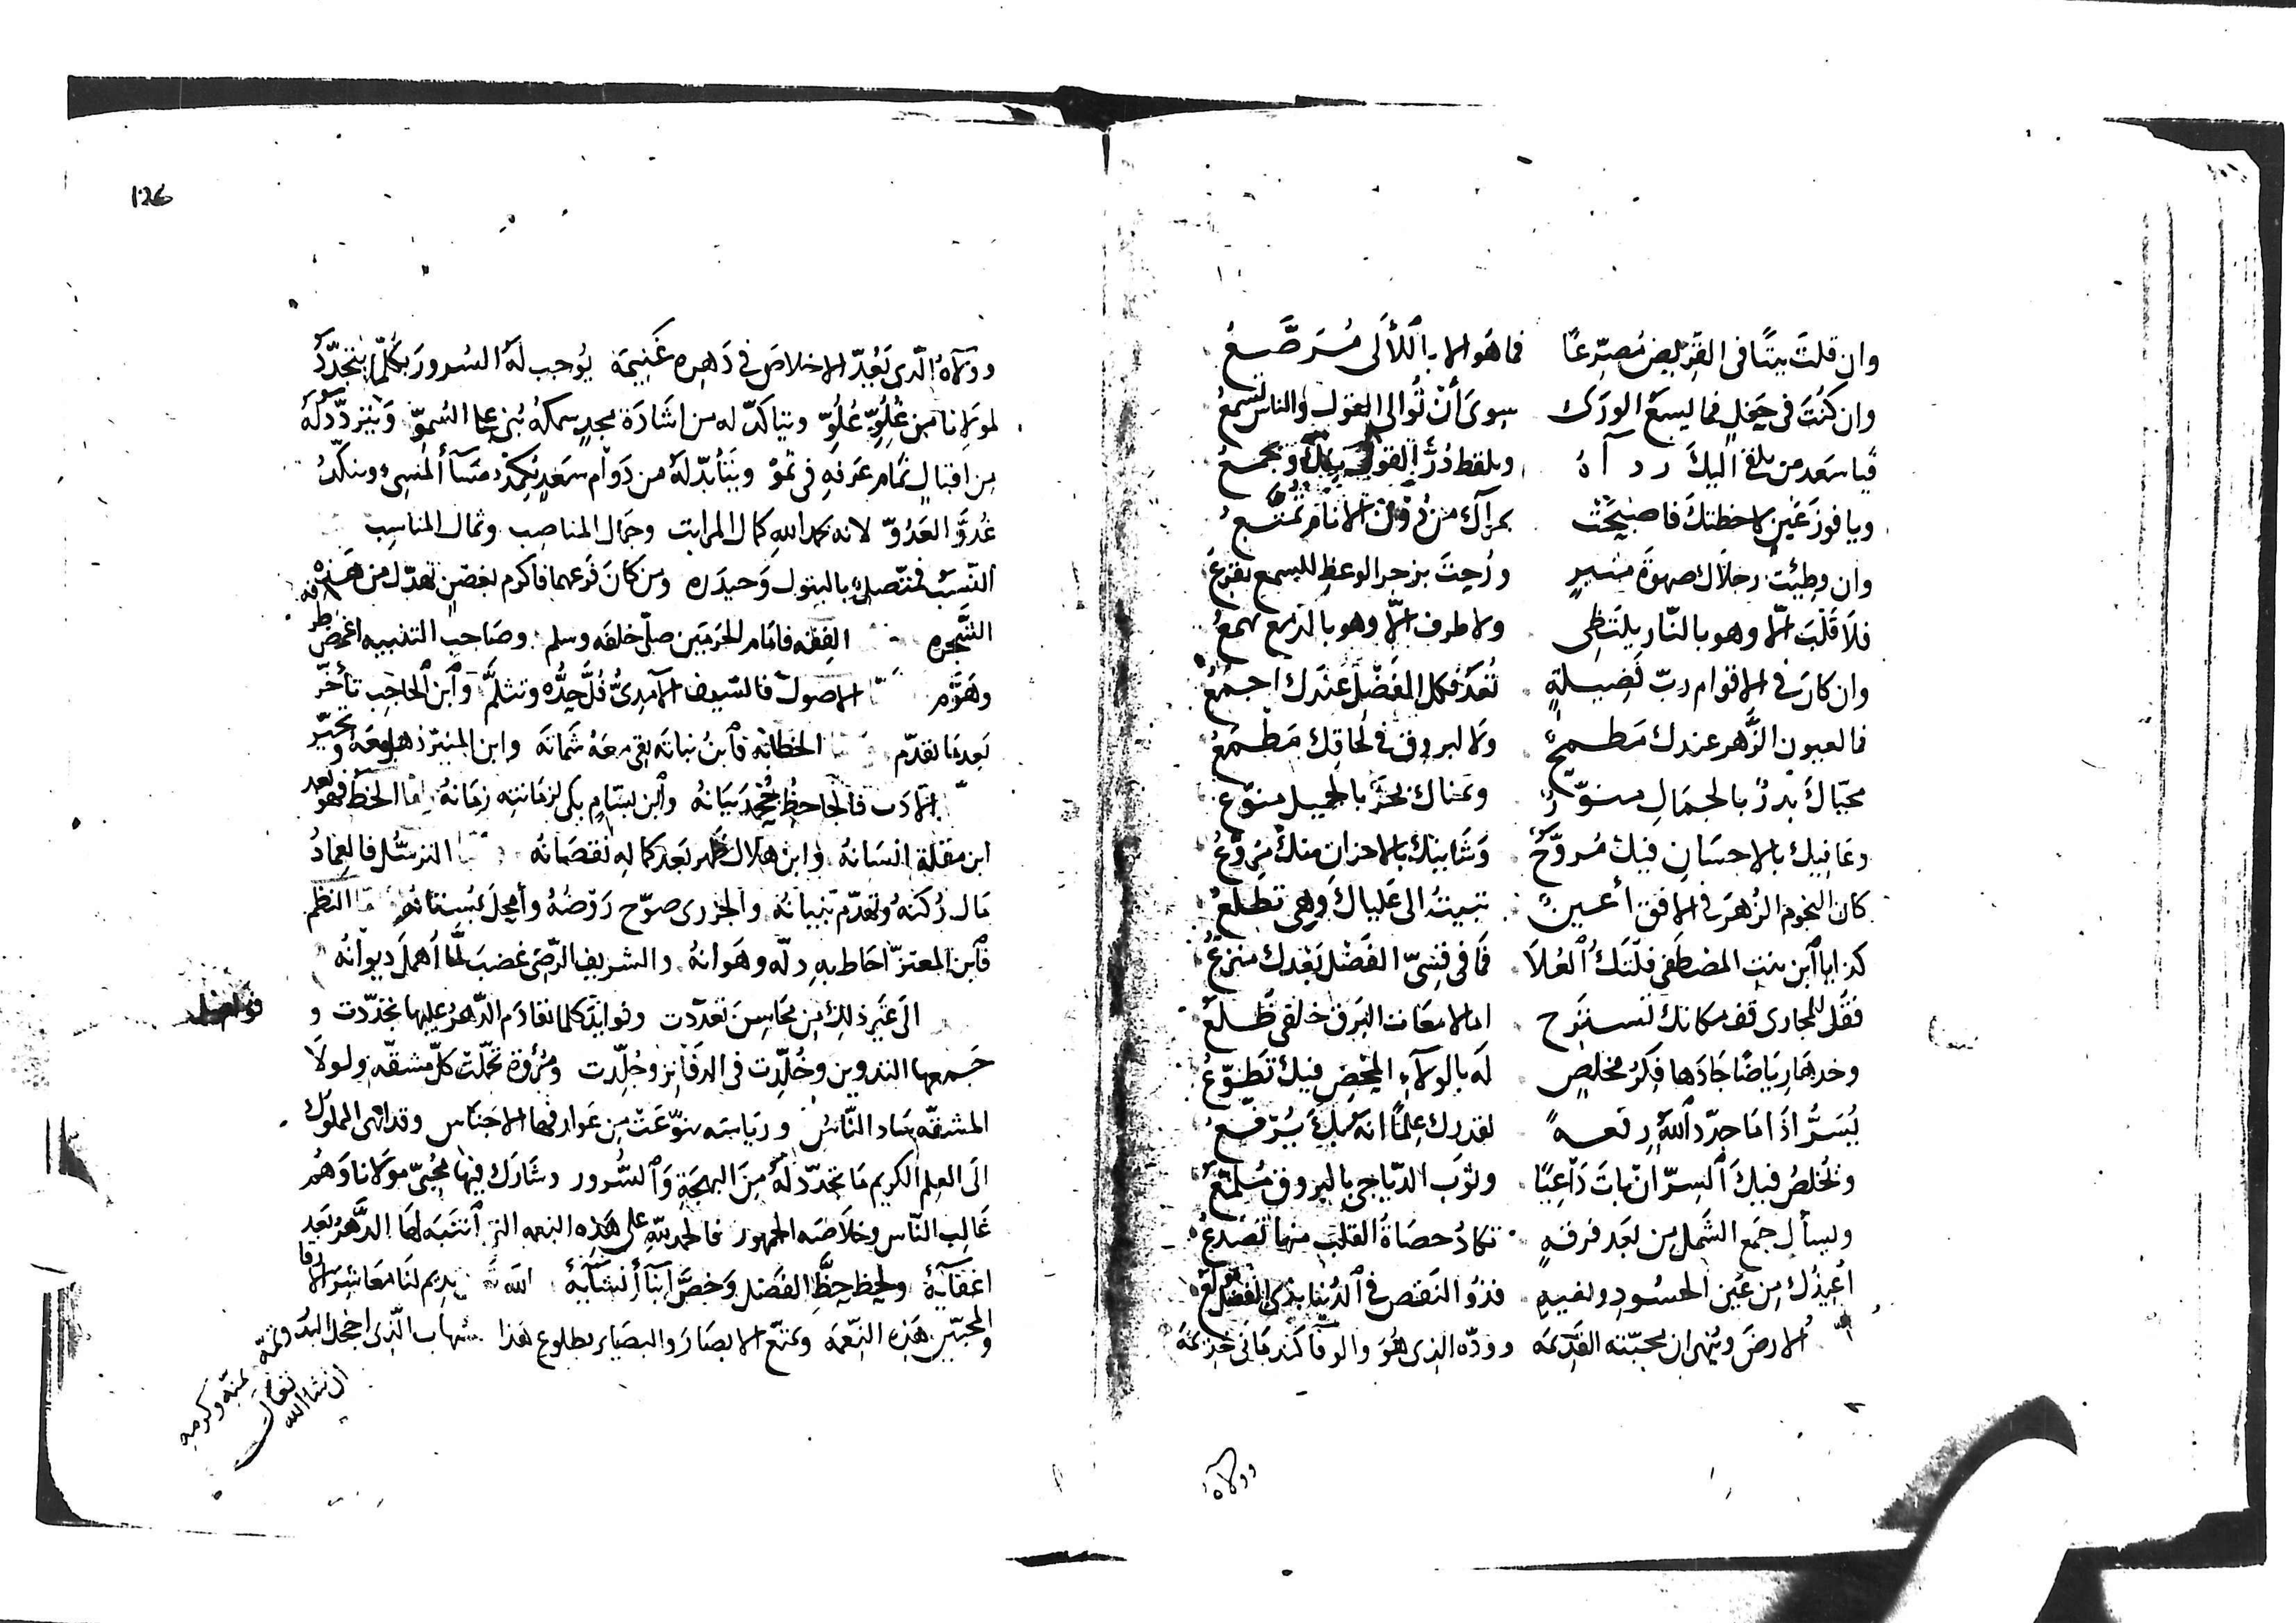 وان قلتَ بيتًا فى القريض مُصرّعًا فما هو الا باللآلى مُرَصَّعُ
وان كنتَ فى حَفلٍ فما يسعُ الورَى سِوى أنْ تُوالى القولَ والناس تسمعُ
فيا سعد من يلقى اليكَ رداهُ ويلقط دُرَّ القول وَيجمعُ
ويا فوزَ عَينٍ لاحظتكَ فاصبحَتْ بمرآك من دون الانام تُمتَّعُ
وان وطِئت رجلاك صهوةَ منبرٍ ورُحتَ بزجر الوعظِ للسمع تقرعُ
فلا قلبَ الّا وهو بالنّار يلتظى ولا طرف الّا وهو بالدمع يهمعُ
وان كان فى الاقوام ربّ فضيلةٍ تُعَدّ فكل الفضل عندك اجمعُ
فما لعيون الزُّهر عندك مَطمحٌ ولا لبروق فى لحاقك مَطمَعُ
محيّاك بدرٌ بالجمَالِ منوّرٌ ويمناك بحرٌ بالجميل منوّعُ
وعافيك بالاحسَانِ فيك مُروَّحٌ وشانيك بالاحزان منك مُروَّعُ
كان النجوم الزُّهرَ فى الافق أعينٌ تبيتُ الى عَلياك وهى تطلعُ
كذا يا ابن بنت المصطفى فلتكُ العُلاَ فما فى قِسِىّ الفَضْل بَعْدك منزعُ
فقُل للمجارى قف مكانك تسترح اما لامعات البَرق خلفى ظُلّعُ
وخذها رِياضًا جَادَها فِكرُ مخلصٍ لَه بالولاءِ المحضِ فيك تَطوّعُ
يُسَرُّ اذا ما جدّد اللهُ رِفعةً لقدرك عِلمًا انه بك يُرفعُ
وتُخلصُ فيكَ السرّ ان باتَ دَاعِيًا وثوب الدّياجى بالبروق مُلمَّعُ
ويسأل جمعَ الشمل من بعد فرقةٍ تكادُ حصَاةُ القلب منها تصَدَّعُ
أُعيذك من عَين الحسُودِ وبغيهِ فذو النقص فى الدُنيا بذى الفضل مُولعُ
الارضَ ويُنهى ان محبّته القديمَه وودّه الذى هُوَ والوفا كندمَانى جذيمَة
وولاهُ
126
وولاهُ الّذى يَعُدّ الاخلاصَ فى دَهره غَنيمَة يُوجب لهُ السُرورَ بكلّما يتجدّدُ
لمولانا مِن عُلُوّ عُلُوّ ويتاكّد له من اشادَة مجدٍ سمكهُ بُنى على السُموّ وَيَتردّد لهُ
مِن اقبالٍ تمَام عَرفهِ فى نموّ ويَتَأبّد لهُ من دَوام سَعدٍ يُكمدُ مَسَآ المُسِىء وينكّدُ
غُدوَّ العَدُوّ لانه بحمد الله كمال المراتب وجمال المناصِب وثمال المناسِب
النّسَب فمتّصلٌ بالبتول وَحيدَره ومن كانَ فرعهما فاكرم بغصنٍ تهدّل من هذه
الشجره الفقه فامَام الحرَمَين صلّى خلفَه وسلم وصَاحب التنبيه اغمض طرفه
وهَوَّم الاصول فالسّيف الآمِدىُّ فُلَّ حِدُّه وتثلّمَّ وابن الحاجب تأخّر
بَعد ما تقدّم الخطابَة فابنُ نباته بقى معَهُ شمَاتَة وابن المنيّر ذهل معَه وتحيّر
الادَب فالجَاحظ جُحِدَ بَيَانهُ وابن بسّام بكى لزمَانته زمَانهُ امّا الخطّ فهو بعد
ابن مقلة انسَانهُ وابن هلال ظهر بَعد كماله نقصَانه الترسُّل فالعِمادُ
مَال رُكنهُ وتهدّم بنيانهُ والجزرى صوّح رَوْضهُ وأمحلَ بُستانه النظم
فابن المعتزّ احَاط بهِ ذلّه وهَوانهُ والشريف الرّضى غضبَ لمّا أهملَ ديوانهُ
الى غَير ذلك مِن محَاسِنَ تعدّدت وفوايد كلما تقادَم الدّهرُ عليها تجدّدت و
جَمعها التدوين وخُلّدت فى الدفاتر وجُلّدت ومُرُوّة تحمّلت كلّ مشقّه ولولَا
المشقّة سَاد النّاسُ ورياسَته تنوّعَتْ مِن عَوارفها الاجناس وقد انهى المملوك
الَى العِلم الكريم مَا تجدّد لهُ مِنَ البهجَةِ وَالسُّرور وشارَك فيها محُبّى مولانا وَهُم
غَالِب النّاس وخلاصَه الجمهور فالحمد للّهِ على هَذِه النعمه التى انتبَه لها الدَّهرُ بَعد
اغفَآئِهِ ولحِظ حِظَّ الفَضل وَخصَّ ابنآ أُنشآئِهِ الله يديم لنا معَاشر الارقا
والمحبّين هَذِه النِّعمَه ويمتّع الابصَارَ والبصَائر بطلوع هَذا شهاب الّذى اخجل البَدر وتمّه بمنّه وكرمِهِ
ان شا الله تعالى